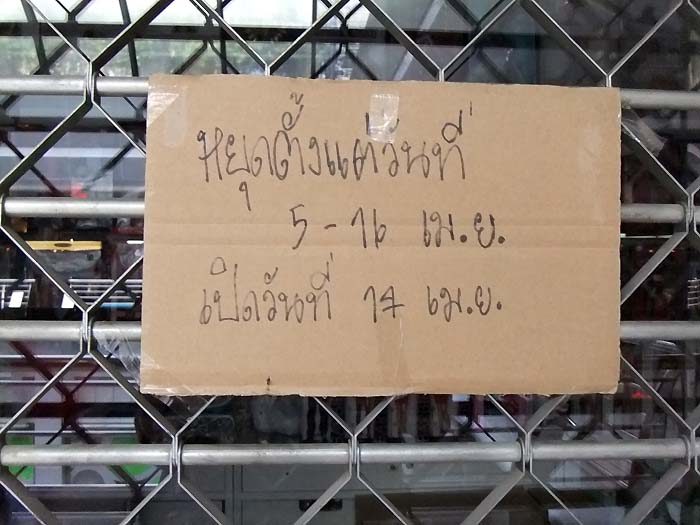 หยุดตั้งแต่วันที่
5 - 16 เม.ย.
เปิดวันที่ 17 เม.ย.